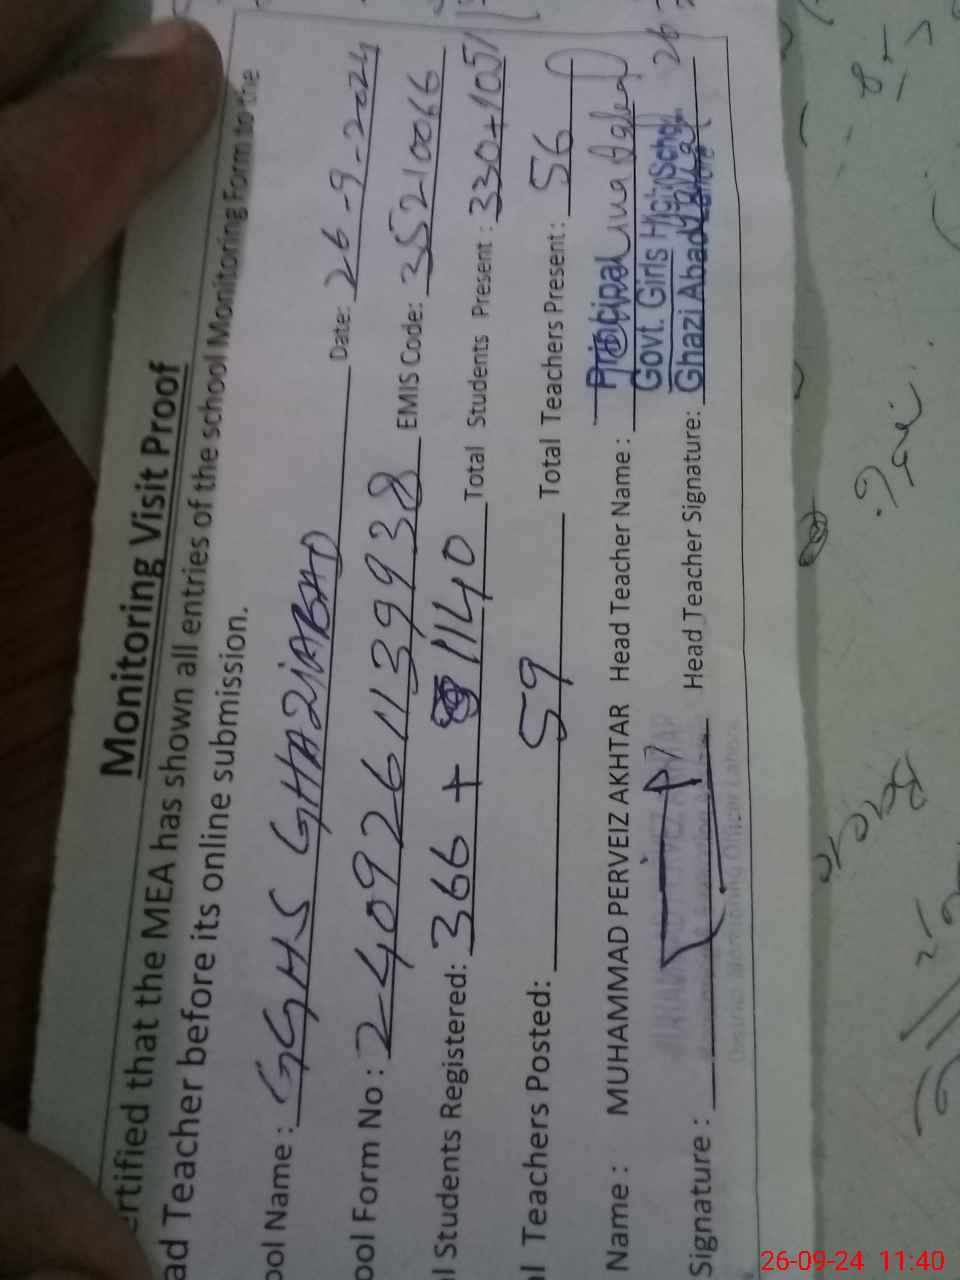 Monitoring Visit Proof
ertified that the MEA has shown all entries of the school Monitoring Form to the
ad Teacher before its online submission.
ool Name : GGHS GHAZIABAD Date: 26-9-2024
ool Form No : 2409261139938 EMIS Code: 35210066
l Students Registered: 366 + 1140 Total Students Present : 330+1051
l Teachers Posted: 59 Total Teachers Present : 56
Name : MUHAMMAD PERVEIZ AKHTAR Head Teacher Name :
Principal
Govt. Girls High School
Ghazi Abad
Signature : Head Teacher Signature: 26
District Monitoring Officer Lahore
26-09-24 11:40